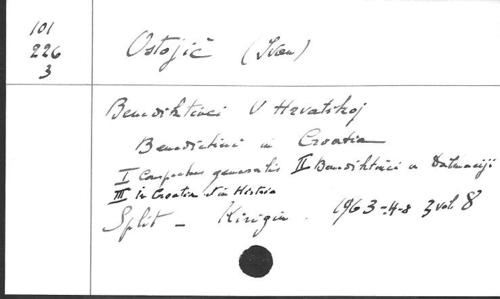 101
226
3
Ostojić (Ivan)
Benediktinci V Hrvatskoj
Benedictini in Croatia
I Conspectus generalis II Benediktinci u Dalmaciji
III in Croatia et in Histria
Split - Kirigin. 1963-4-8 3 vol 8